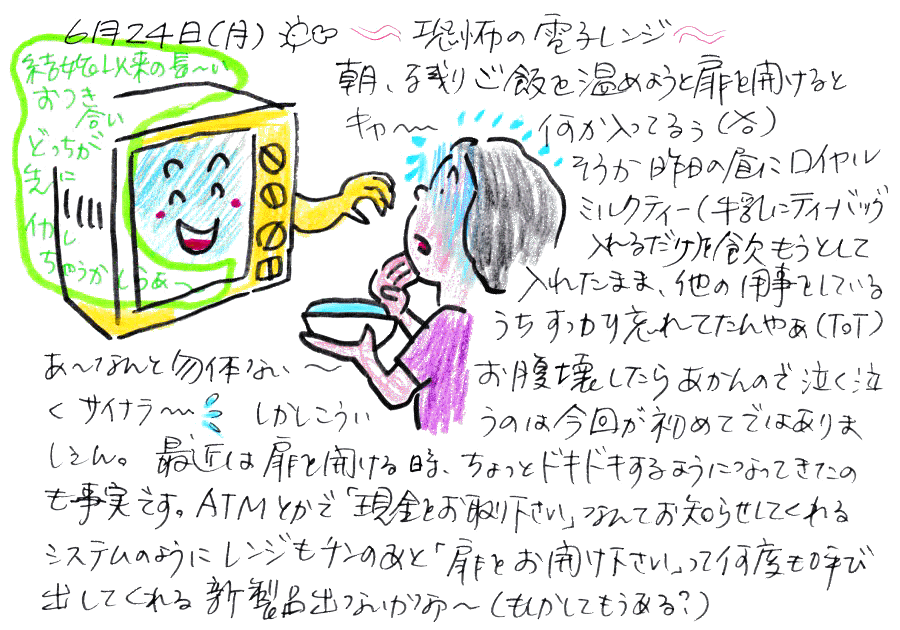 6月24日(月) 〜恐怖の電子レンジ〜
結婚以来の長〜い
おつき
合い
どっちが
先に
イカレ
ちゃうかしらあ〜
朝、残りご飯を温めようと扉を開けると
キャ〜 何か入ってるぅ(※)
そうか昨日の昼にロイヤル
ミルクティー(牛乳にティーバッグ
入れるだけ)を飲もうとして
入れたまま、他の用事をしている
うちすっかり忘れてたんやぁ(ToT)
あ〜なんと勿体ない〜 お腹壊したらあかんので泣く泣
くサイナラ〜 しかしこうい うのは今回が初めてではありま
しせん。最近は扉を開ける時、ちょっとドキドキするようになってきたの
も事実です。ATMとかで「現金をお取り下さい」なんてお知らせしてくれる
システムのようにレンジもチンのあと「扉をお開け下さい」って何度も呼び
出してくれる新製品出ないかなぁ〜(もしかしてもうある?)